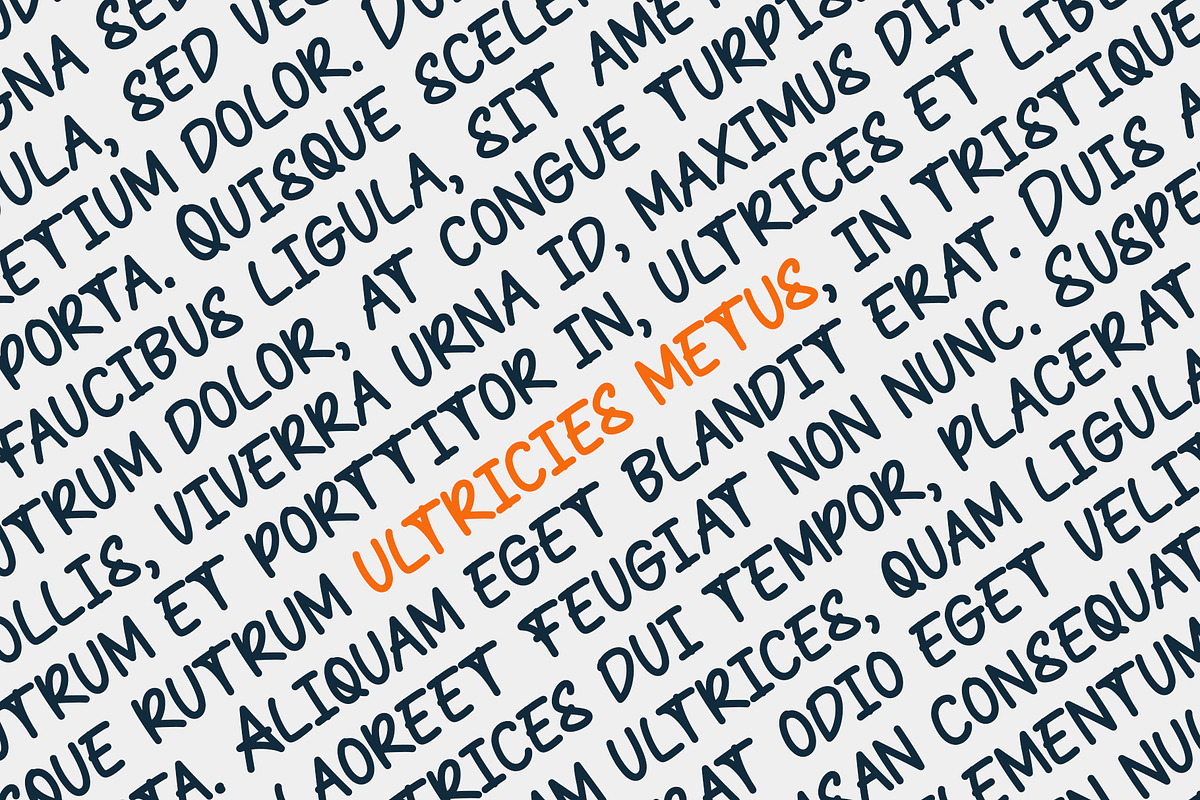 GNA SED
ULA, SED VE
ETIUM DOLOR. DU
PORTA. QUISQUE SCELE
FAUCIBUS LIGULA, SIT AME
UTRUM DOLOR, AT CONGUE TURPIS
OLLIS, VIVERRA URNA ID, MAXIMUS DIA
UTRUM ET PORTTITOR IN, ULTRICES ET LIBE
SQUE RUTRUM ULTRICIES METUS, IN TRISTIQUE
TA. ALIQUAM EGET BLANDIT ERAT. DUIS A
LAOREET FEUGIAT NON NUNC. SUSPE
TRICES DUI TEMPOR, PLACERAT
AM ULTRICES, QUAM LIGULA
RAT ODIO EGET VELIT
SAN CONSEQUAT
LEMENTUM
N NU